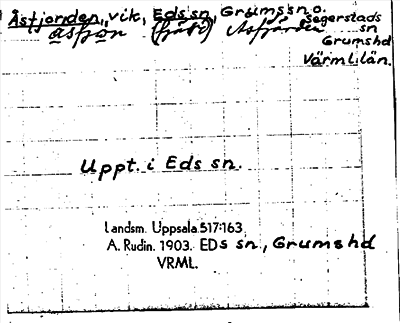 Åsfjorden, vik, Eds sn, Grums sn o.
Segerstads
sn
Grumshd
Värml. län.
Uppt. i Eds sn.
Landsm. Uppsala 517:163
A. Rudin. 1903. EDs sn., Grumshd
VRML.